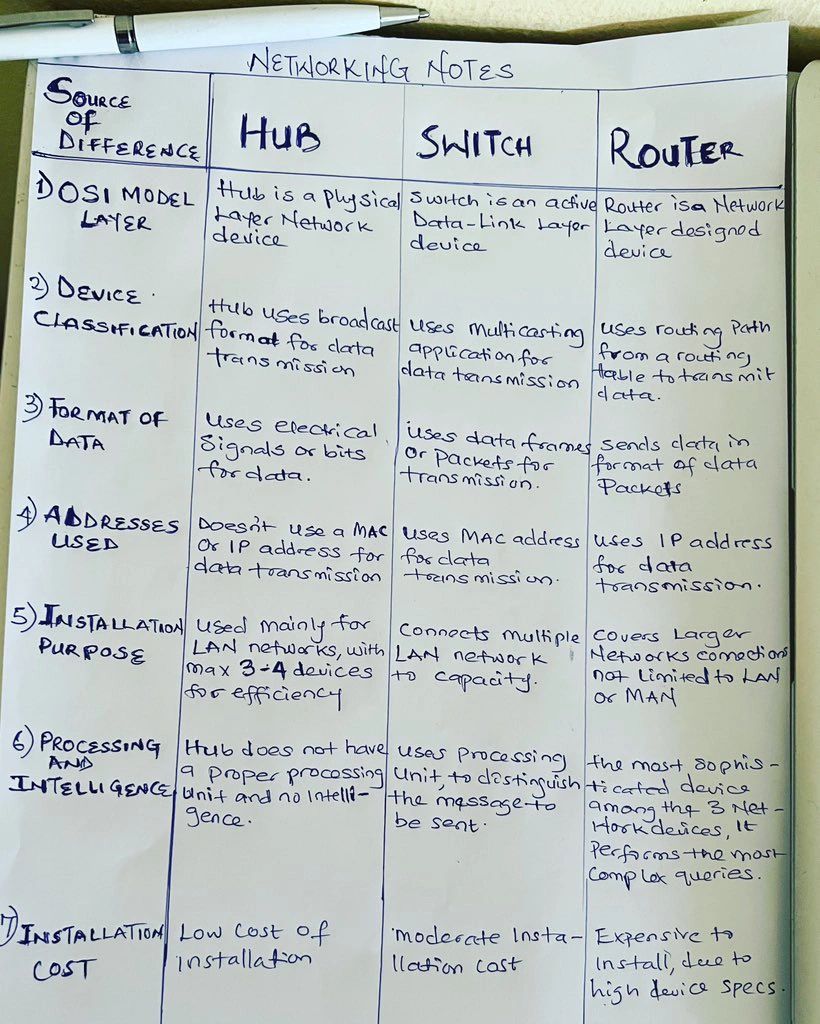 NETWORKING NOTES
SOURCE
OF
DIFFERENCE
HUB
SWITCH
ROUTER
1) OSI MODEL
LAYER
Hub is a Physical
Layer Network
device
Switch is an active
Data-Link Layer
device
Router is a Network
Layer designed
device
2) DEVICE
CLASSIFICATION
Hub uses broadcast
format for data
transmission
uses multicasting
application for
data transmission
uses routing Path
from a routing
table to transmit
data.
3) FORMAT OF
DATA
uses electrical
Signals or bits
for data.
uses data frames
or packets for
transmission.
sends data in
format of data
Packets
4) ADDRESSES
USED
Doesn't use a MAC
or IP address for
data transmission
uses MAC address
for data
transmission.
uses IP address
for data
transmission.
5) INSTALLATION
PURPOSE
used mainly for
LAN networks, with
max 3-4 devices
for efficiency
Connects multiple
LAN network
to capacity.
covers Larger
Networks connections
not limited to LAN
or MAN
6) PROCESSING
AND
INTELLIGENCE
Hub does not have
a proper processing
Unit and no Intelli-
gence.
uses processing
Unit, to distinguish
the message to
be sent.
the most sophis-
ticated device
among the 3 Net-
work devices, it
Performs the most
Complex queries.
7) INSTALLATION
COST
Low cost of
installation
moderate Insta-
llation cost
Expensive to
install, due to
high device specs.